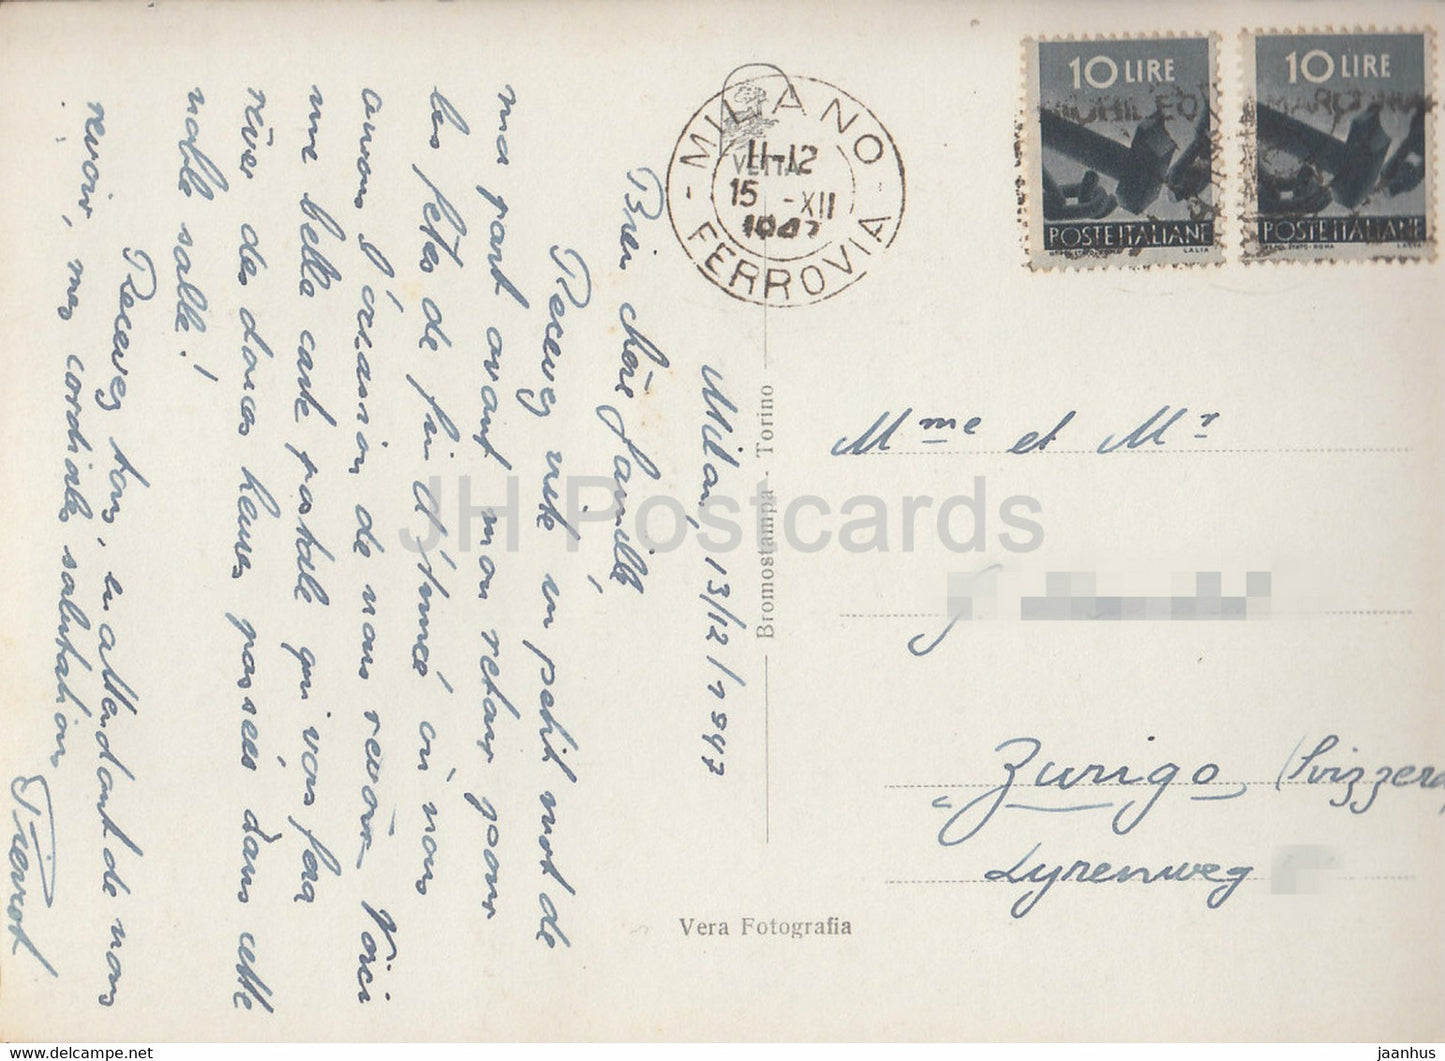 Milan, 13/12/1947
Bien chère famille,
Recevez vite un petit mot de
ma part avant mon retour pour
les fêtes de fin d'année où nous
aurons l'occasion de nous revoir. Voici
une belle carte postale qui vous fera
rêver des douces heures passées dans cette
noble salle!
Recevez tous, en attendant de nous
revoir, mes cordiales salutations
Pierrot
MILANO
11-12
15 -XII
1947
FERROVIA
10 LIRE
POSTE ITALIANE
10 LIRE
POSTE ITALIANE
Mme et Mr
J.
Zurigo (Svizzera)
Lyrenweg
Bromostampa - Torino
Vera Fotografia
JH Postcards
https://www.delcampe.net
jaanhus